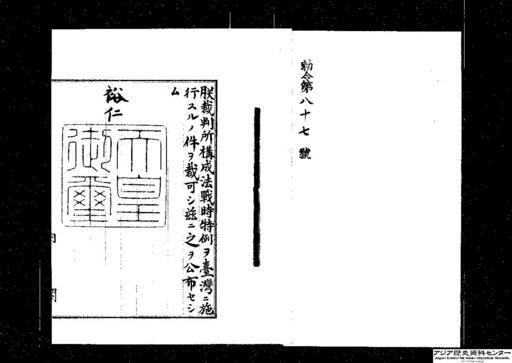 勅令第八十七號
朕裁判所構成法戰時特例ヲ臺灣ニ施
行スルノ件ヲ裁可シ茲ニ之ヲ公布セシ
ム
裕仁
天皇
御璽
内閣
アジア歴史資料センター
Japan Center for Asian Historical Records